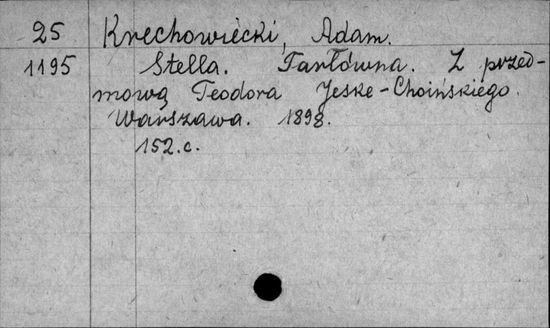 25 Krechowiecki, Adam.
1195 Stella. Tarłówna. Z przed-
mową Teodora Jeske-Choińskiego.
Warszawa. 1898.
152.c.